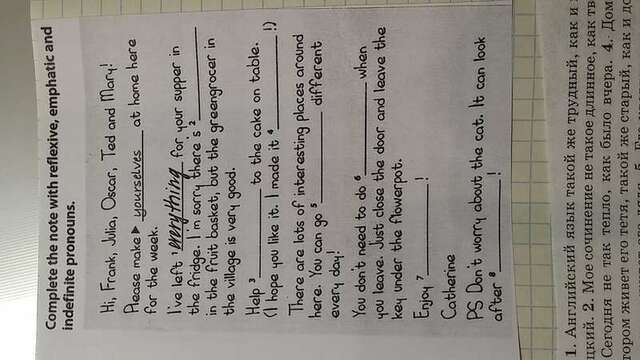 Complete the note with reflexive, emphatic and
indefinite pronouns.
Hi, Frank, Julia, Oscar, Ted and Mary!
Please make ▶ yourselves at home here
for the week.
I've left ¹ everything for your supper in
the fridge. I'm sorry there's ²__________
in the fruit basket, but the greengrocer in
the village is very good.
Help ³__________ to the cake on table.
(I hope you like it. I made it ⁴__________!)
There are lots of interesting places around
here. You can go ⁵__________ different
every day!
You don't need to do ⁶__________ when
you leave. Just close the door and leave the
key under the flowerpot.
Enjoy ⁷__________!
Catherine
PS Don't worry about the cat. It can look
after ⁸__________!
1. Английский язык такой же трудный, как и
цкий. 2. Мое сочинение не такое длинное, как
Сегодня не так тепло, как было вчера. 4. Дом
тором живет его тетя, такой же старый, как и